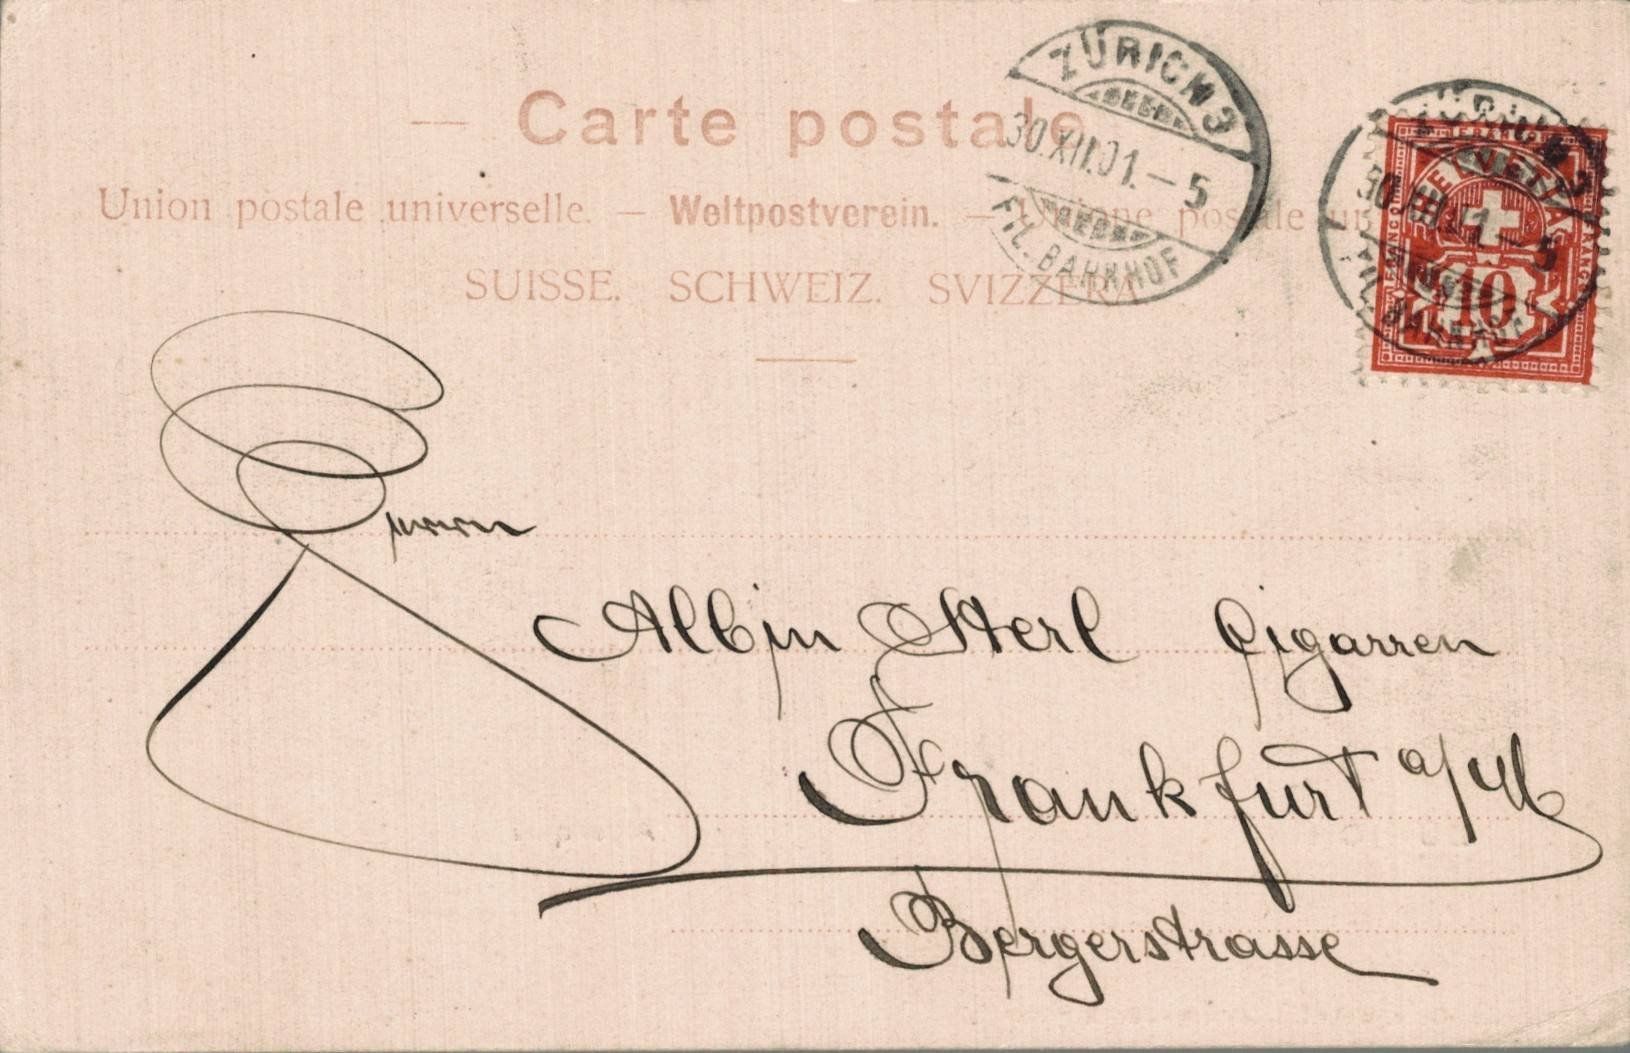 Carte postale
Union postale universelle. — Weltpostverein. — Unione postale un
SUISSE. SCHWEIZ. SVIZZERA
ZÜRICH 3
30.XII.01.–5
FIL. BAHNHOF
ZÜRICH 3
30.XII.01.–5
FIL. BAHNHOF
FRANCO
HELVETIA
FRANCO
FRANCO
10
Herrn
Albin Sterl Cigarren
Frankfurt a/M
Bergerstrasse